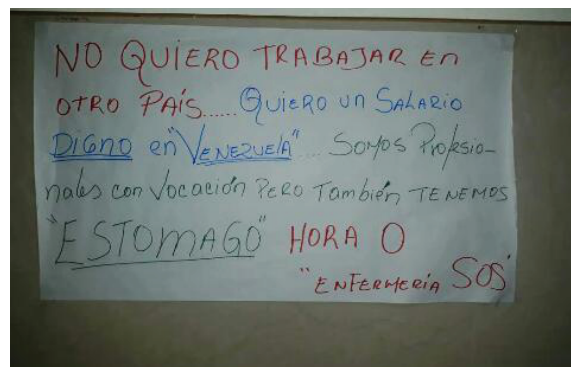 NO QUIERO TRABAJAR En
OTRO PAÍS...... QUIERO Un SALARIO
DIGNO en "VENEZUElA".... SomoS Profesio-
nales con Vocación PERO También TENEMOS
"ESTOMAGO" HORA O
"ENFERMERÍA SOS"